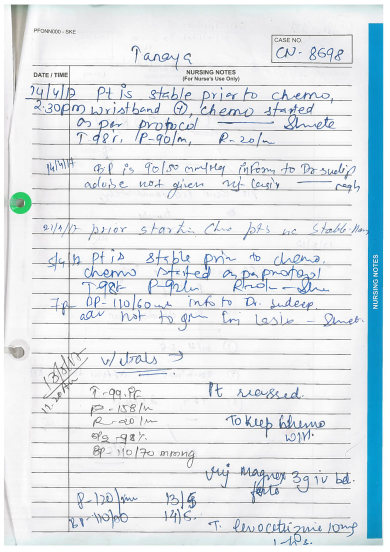 PFONN000 - SKE
CASE NO.
CN - 8698
Tanaya
DATE / TIME
NURSING NOTES
(For Nurse's Use Only)
14/4/17 Pt is stable prior to chemo,
2.30pm wristband, chemo started
as per protocol
T-98F, P-90/m, R-20/m
14/4/17 B.P is 90/50 mmHg inform to Dr Sudip
advise not given inj lasix
prior chemo pts is stable
Pt is stable prior to chemo,
chemo started as per protocol
T-98F P-92/m R-20/m
BP-110/60 info to Dr. Sudeep.
adv not to give inj lasix
NURSING NOTES
13/5/17
11.20
vitals →
T-99.
P-158/m
R-20/m
98%
BP-110/70 mmHg
Pt reassessed.
To keep chemo
Inj Magnex 3g iv bd.
P-120/min 13/5
BP-110/ 14/5
T. levocetrizine 10mg